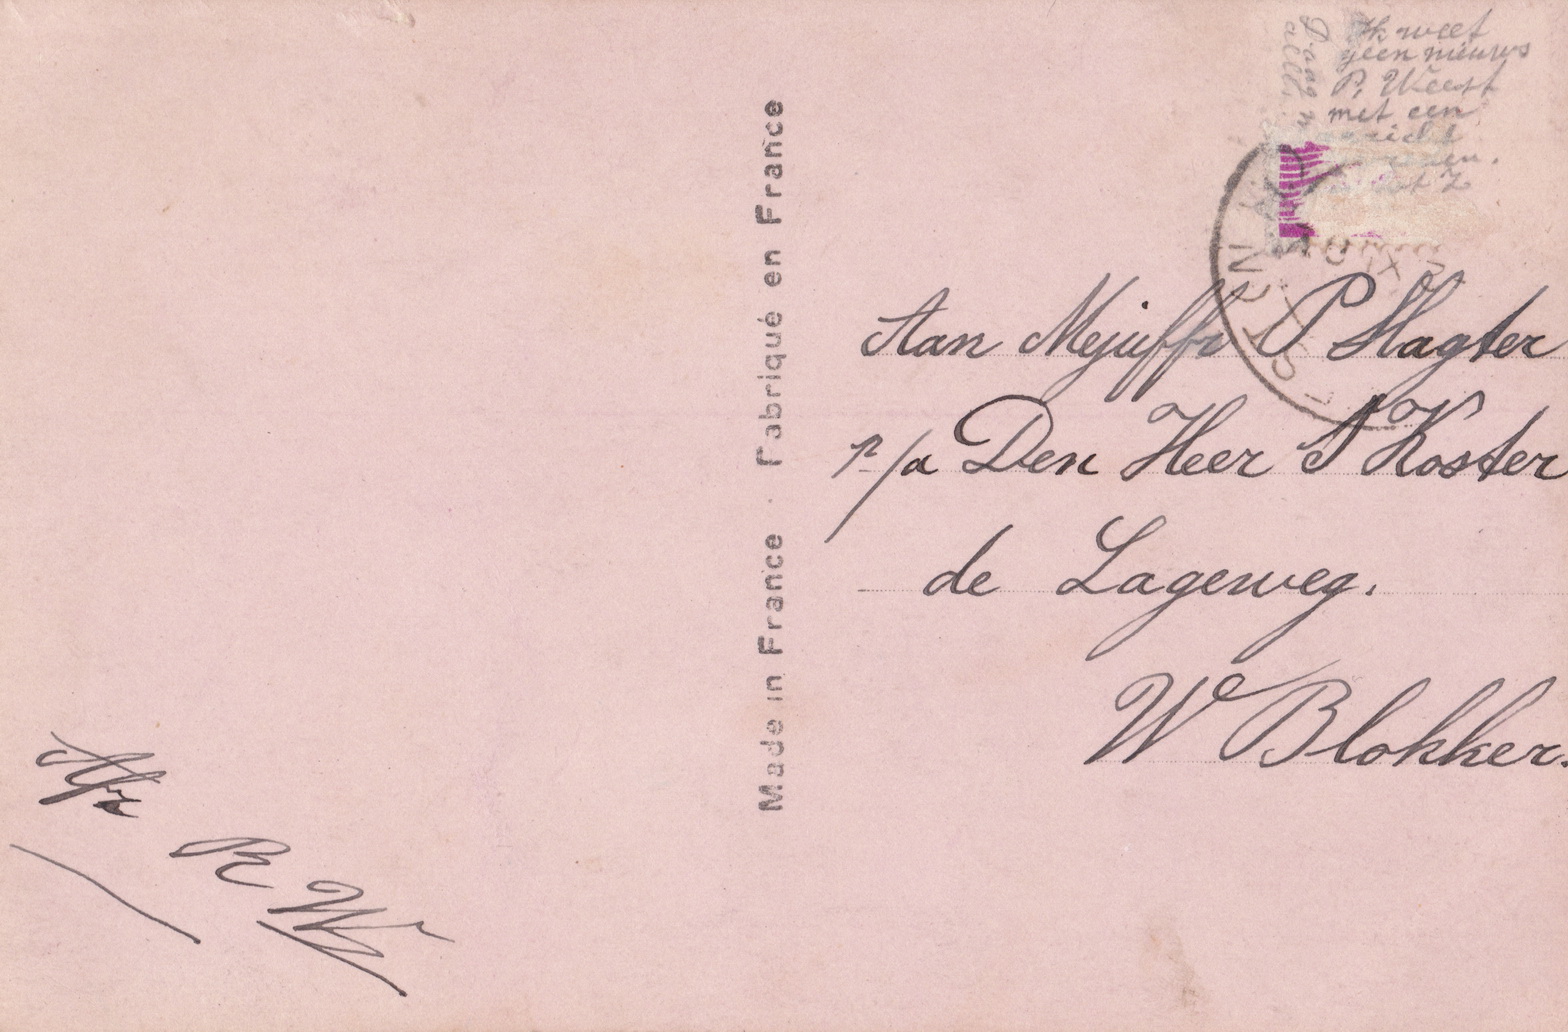 Ik weet
geen nieuws
P. Weest
met een
Daag
Aan Mejuffr P Slagter
p/a Den Heer S Koster
de Lageweg.
W Blokker.
Made in France · Fabriqué en France
Afz
R W